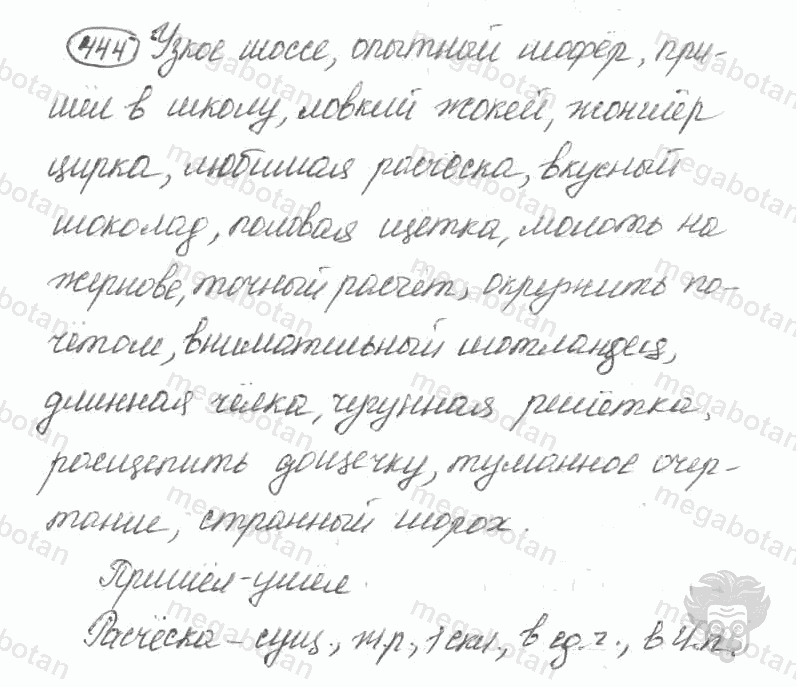 444 Узкое шоссе, опытный шофёр, при-
шёл в школу, ловкий жокей, жонглёр
цирка, любимая расчёска, вкусный
шоколад, половая щётка, молоть на
жернове, точный расчёт, окружить по-
чётом, внимательный шотландец,
длинная чёлка, чугунная решётка,
расщепить дощечку, туманное очер-
тание, странный шорох.
Пришёл-ушёл.
Расчёска – сущ., ж.р., 1 скл., в ед.ч., в И.п.
megabotan